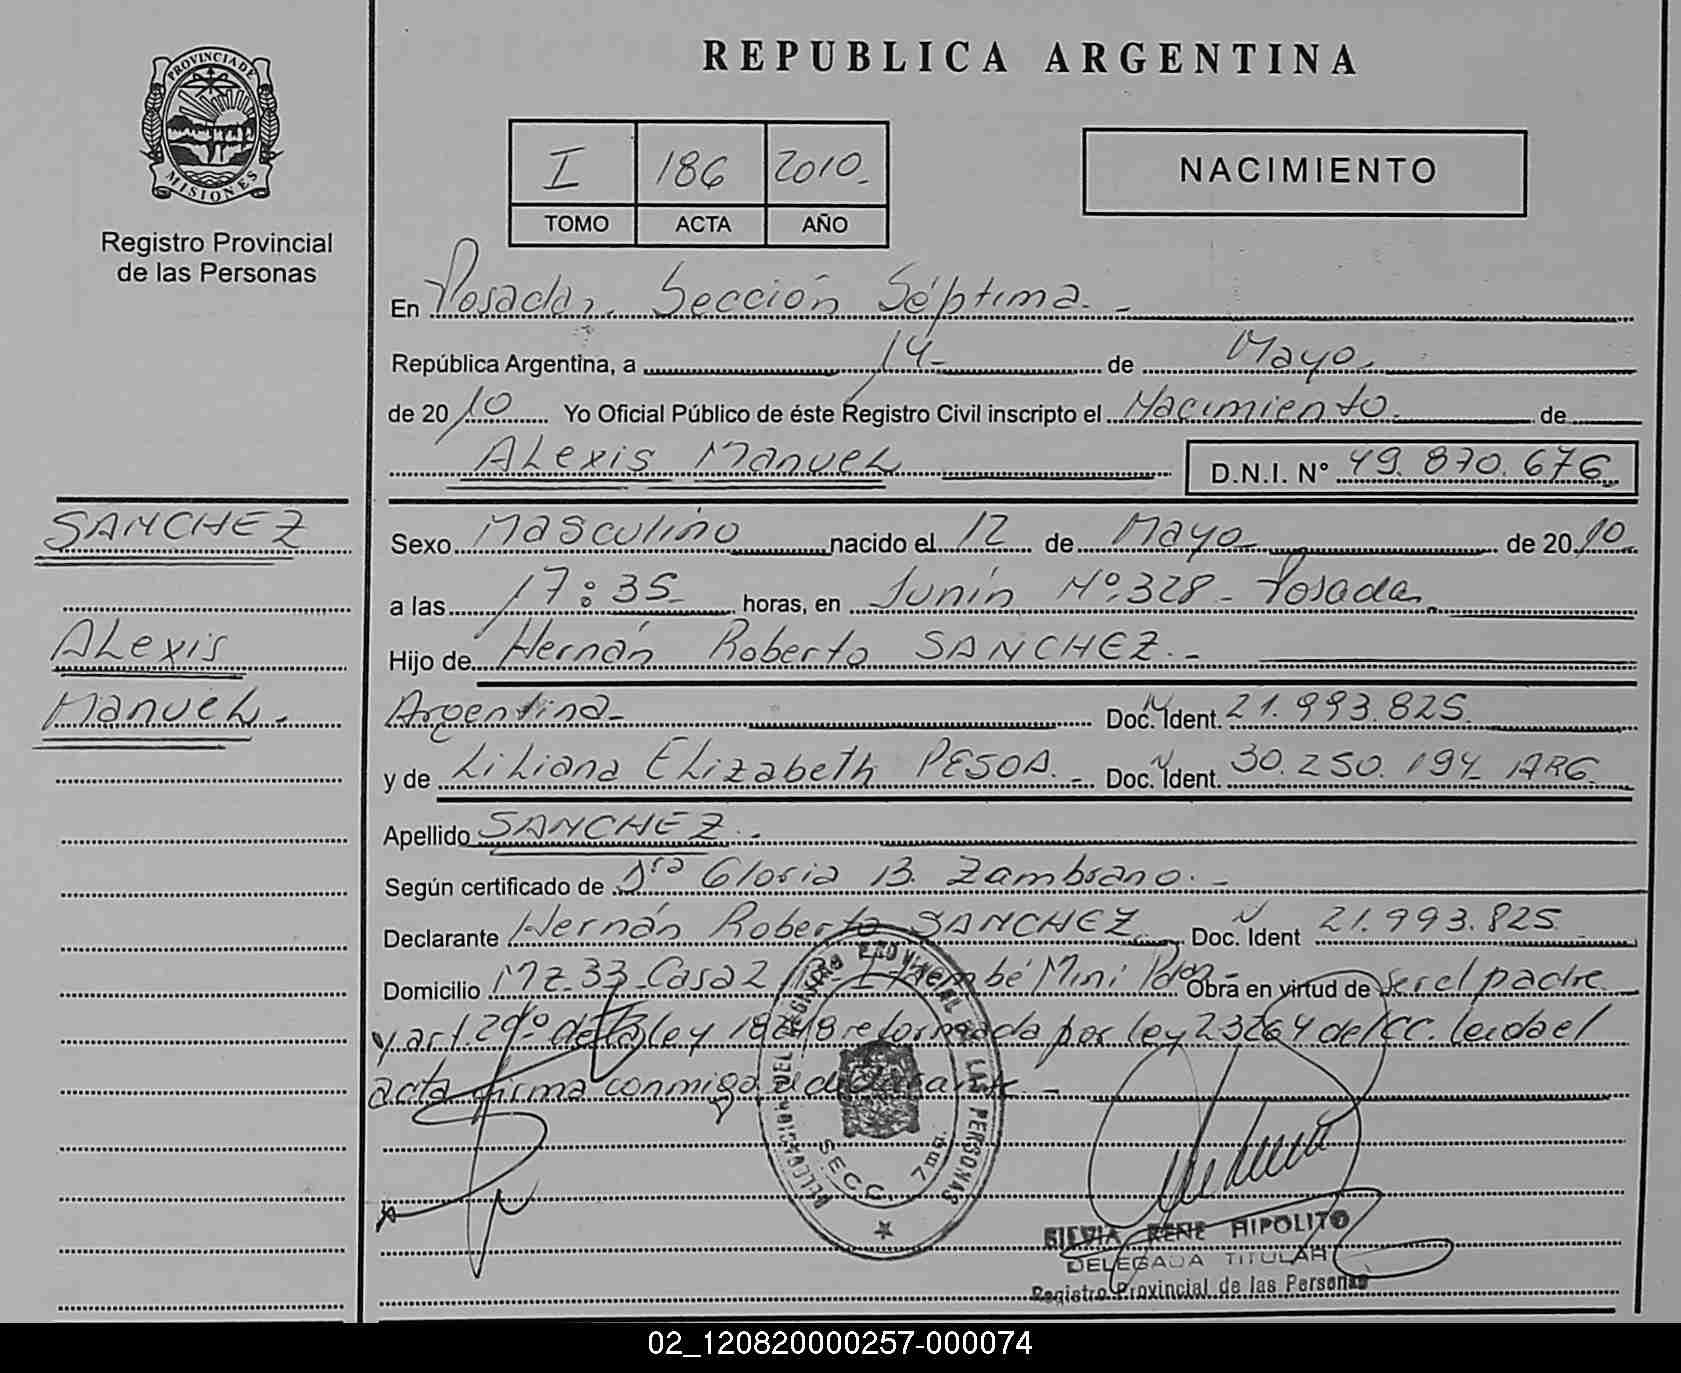 REPUBLICA ARGENTINA
PROVINCIA DE
MISIONES
Registro Provincial
de las Personas
I 186 2010
TOMO ACTA AÑO
NACIMIENTO
En Posadas, Sección Séptima.-
República Argentina, a 14 de Mayo
de 2010 Yo Oficial Público de éste Registro Civil inscripto el Nacimiento de
Alexis Manuel D.N.I. N° 49.870.676
SANCHEZ
Alexis
Manuel.-
Sexo Masculino nacido el 12 de Mayo de 2010
a las 17:35 horas, en Junín N°:328 - Posadas
Hijo de Hernán Roberto SANCHEZ.-
Argentina- Doc. Ident. 21.993.825
y de Liliana Elizabeth PESOA.- Doc. Ident. 30.250.194 ARG.
Apellido SANCHEZ.-
Según certificado de Dra Gloria B. Zambrano.-
Declarante Hernán Roberto SANCHEZ Doc. Ident 21.993.825
Domicilio Mz.33 Casa 2 Itaembé Mini Pdas- Obra en virtud de ser el padre
y art. 29° de la ley 18248 reformada por ley 23264 del CC. leida el
acta firma conmigo el declarante.-
REGISTRO PROVINCIAL DE LAS PERSONAS
SECC. 7ma.
SILVIA RENE HIPOLITO
DELEGADA TITULAR
Registro Provincial de las Personas
02_120820000257-000074